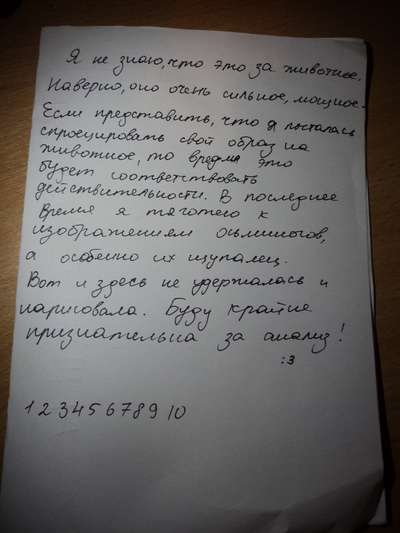 Я не знаю, что это за животное.
Наверно, оно очень сильное, мощное.
Если представить, что я пыталась
спроецировать свой образ на
животное, то вряд ли это
будет соответствовать
действительности. В последнее
время я тяготею к
изображениям осьминогов,
а особенно их щупалец.
Вот и здесь не удержалась и
нарисовала. Буду крайне
признательна за анализ!
:3
1 2 3 4 5 6 7 8 9 10